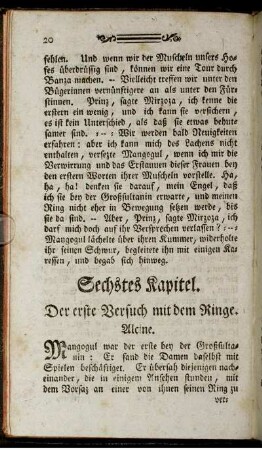 20
fehlen. Und wenn wir der Muscheln unsers Ho-
fes überdrüßig sind, können wir eine Tour durch
Banza machen. – Vielleicht treffen wir unter den
Bügerinnen vernünftigere an als unter den Für-
stinnen. Prinz, sagte Mirzoza, ich kenne die
erstern ein wenig, und ich kann sie versichern,
es ist kein Unterschied, als daß sie etwas behut-
samer sind. :-: Wir werden bald Neuigkeiten
erfahren: aber ich kann mich des Lachens nicht
enthalten, versetzte Mangogul, wenn ich mir die
Verwirrung und das Erstaunen dieser Frauen bey
den ersten Worten ihrer Muscheln vorstelle. Ha,
ha, ha! denken sie darauf, mein Engel, daß
ich sie bey der Großsultanin erwarte, und meinen
Ring nicht eher in Bewegung setzen werde, bis
sie da sind. – Aber, Prinz, sagte Mirzoza, ich
darf mich doch auf ihr Versprechen verlassen? :-:
Mangogul lächelte über ihren Kummer, wiederholte
ihr seinen Schwur, begleitete ihn mit einigen Ka-
ressen, und begab sich hinweg.
Sechstes Kapitel.
Der erste Versuch mit dem Ringe.
Alcine.
Mangogul war der erste bey der Großsulta-
nin: Er fand die Damen daselbst mit
Spielen beschäftiget. Er übersah diejenigen nach-
einander, die in einigem Ansehen stunden, mit
dem Vorsaz an einer von ihnen seinen Ring zu
ver-